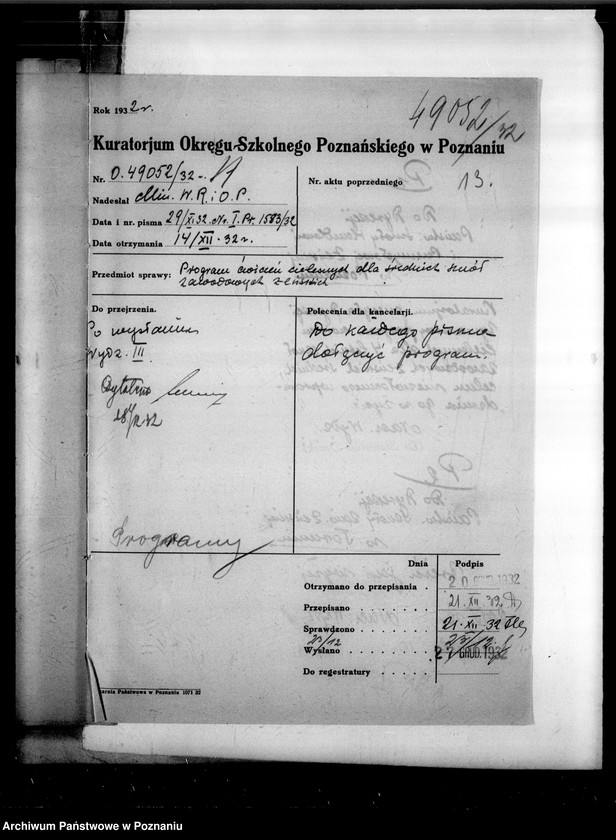 49052/32
Rok 1932 r.
Kuratorjum Okręgu Szkolnego Poznańskiego w Poznaniu
Nr. O.49052/32
Nr. aktu poprzedniego
13.
Nadesłał Min. W. R. i O. P.
Data i nr. pisma 29/XI 32 Nr. I. Pr. 1583/32
Data otrzymania 14/XII 32 r.
Przedmiot sprawy: Program ćwiczeń cielesnych dla średnich szkół
zawodowych żeńskich
Do przejrzenia.
Polecenia dla kancelarji.
Po wysłaniu
Wydz. III
Do każdego pisma
dołączyć program.
Czytałam
28/XII 32
Programy
Dnia
Podpis
Otrzymano do przepisania
20 1932
Przepisano
21. XII 32
Sprawdzono
21. XII 32
23/12
Wysłano
27 GRUD. 1932
Do registratury
Państwowa w Poznaniu 1071 32
Archiwum Państwowe w Poznaniu